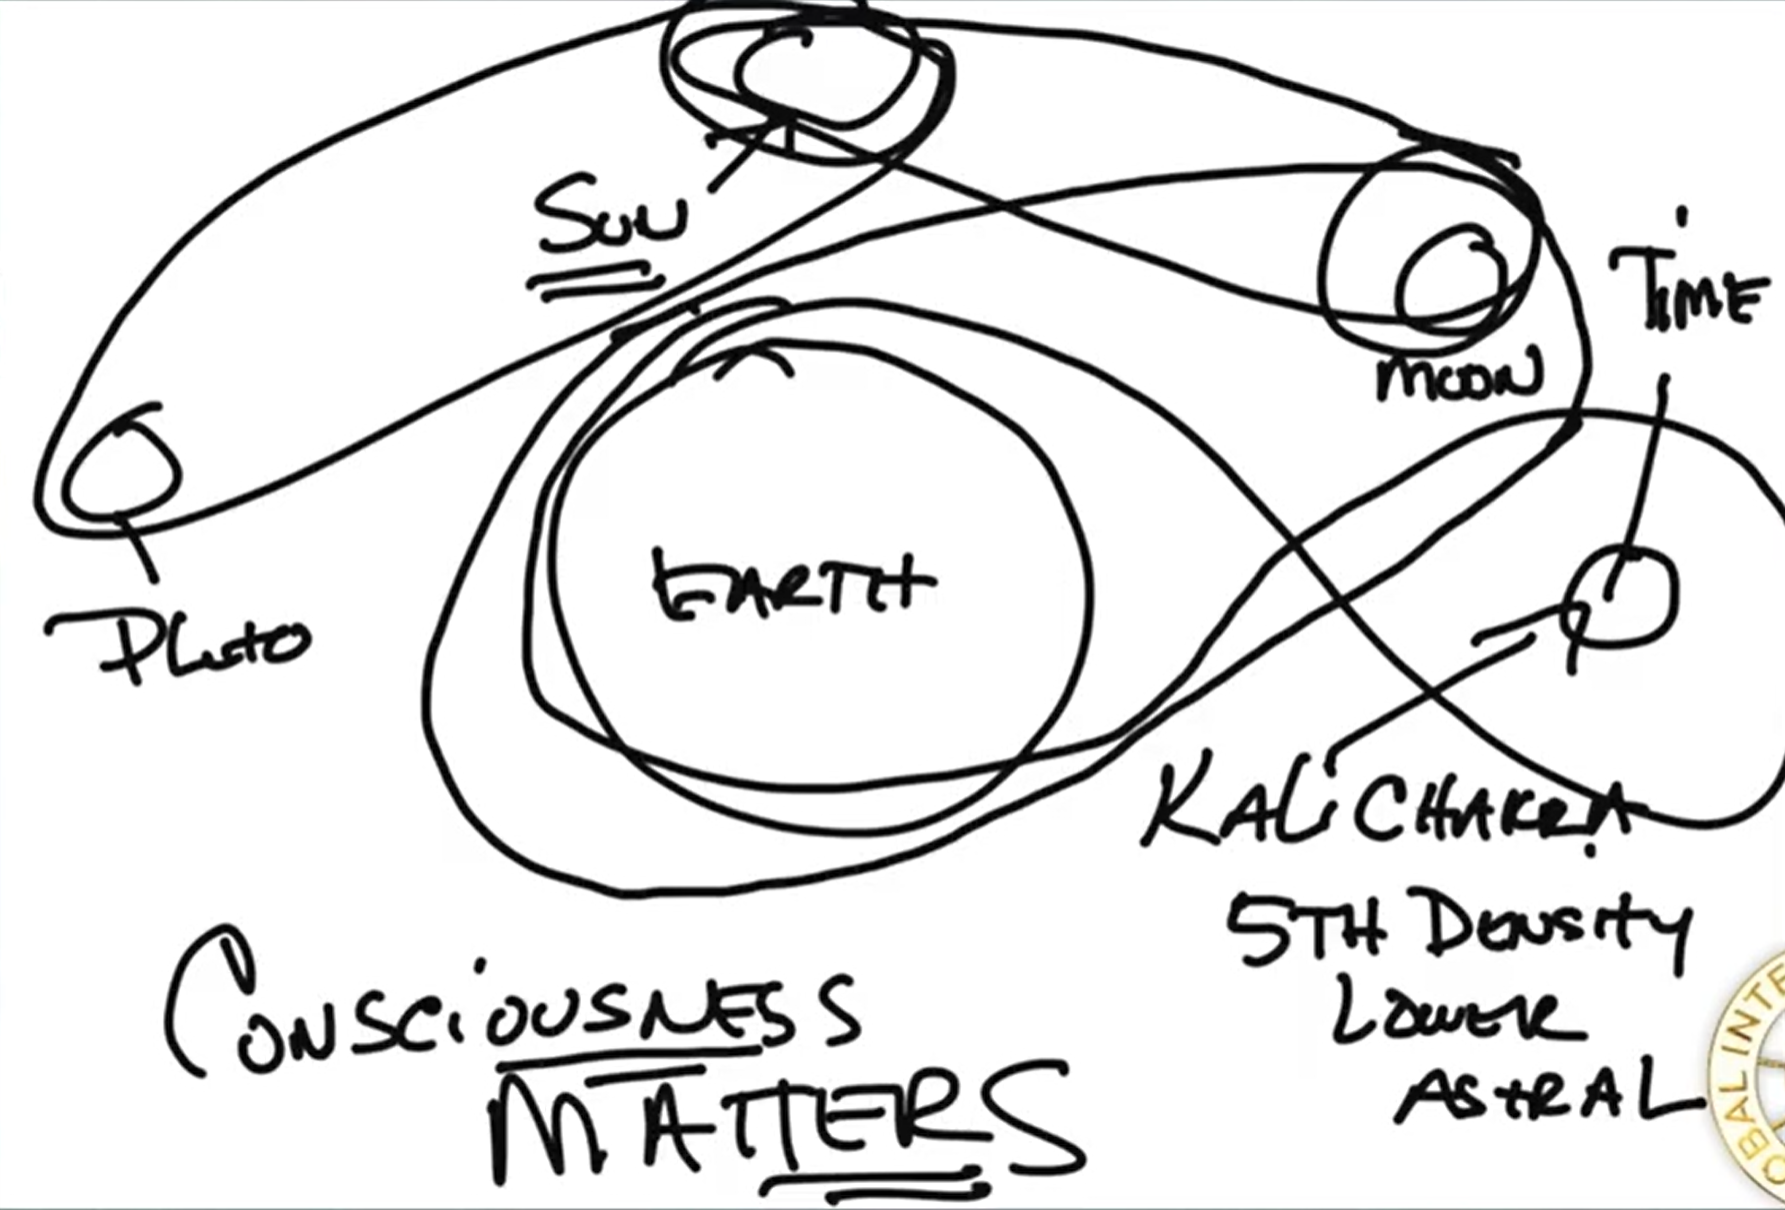 SUN
TIME
MOON
EARTH
PLUTO
KALi CHAKRA
5TH DENSITY
LOWER
ASTRAL
CONSCiOUSNESS
MATTERS
OBAL INTE